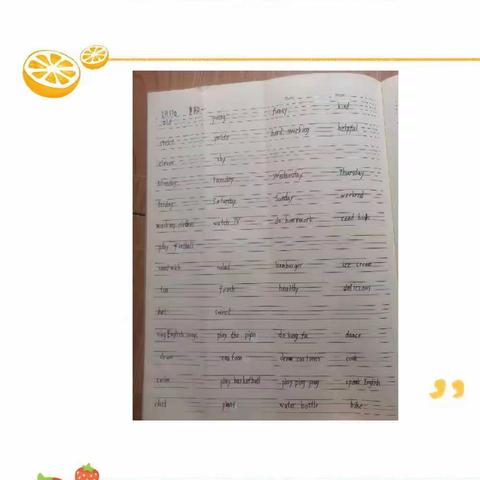 old young funny kind
strict polite hard-working helpful
clever shy
Monday Tuesday Wednesday Thursday
Friday Saturday Sunday weekend
wash my clothes watch TV do homework read books
play football
sandwich salad hamburger ice cream
tea fresh healthy delicious
hot sweet
sing English songs play the pipa do kung fu dance
draw cartoon draw cartoons cook
swim play basketball play ping-pong speak English
plant water bottle bike